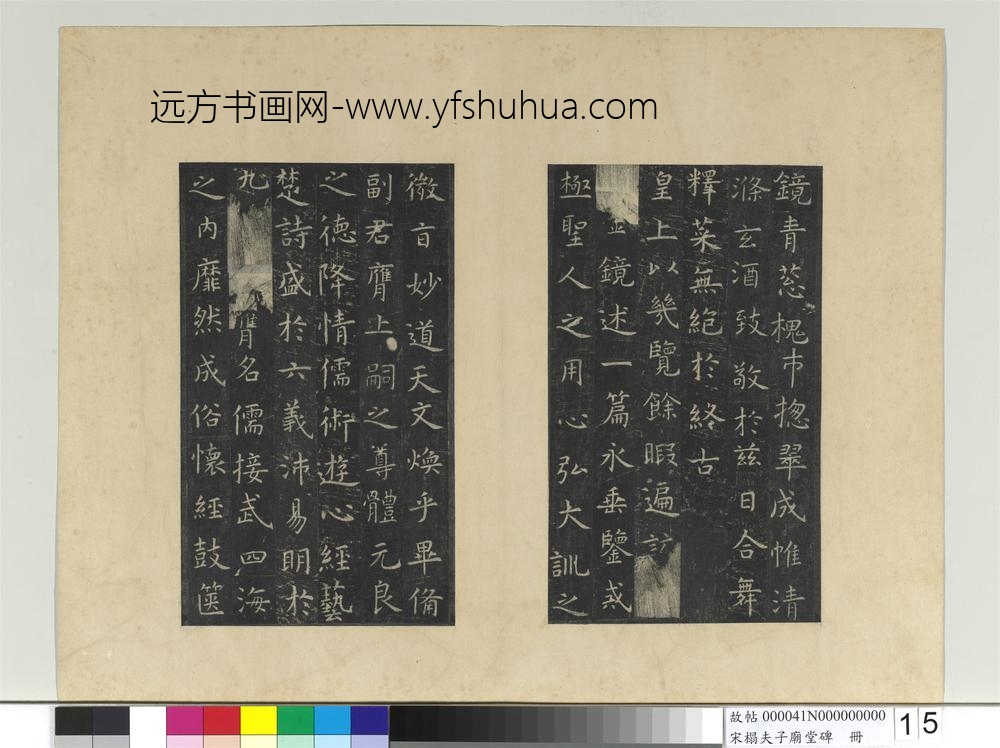 远方书画网-www.yfshuhua.com
鏡青蔥槐市揔翠成帷清
滌玄酒致敬於兹日合舞
釋菜無絶於終古
皇上以幾覽餘暇遍
鏡述一篇永垂鑒戒
極聖人之用心弘大訓之
微旨妙道天文煥乎畢備
副君膺上嗣之尊體元良
之德降情儒術遊心經藝
楚詩盛於六義沛易明於
九 名儒接武四海
之内靡然成俗懷經鼓篋
故帖 000041N000000000
宋榻夫子廟堂碑 冊
15